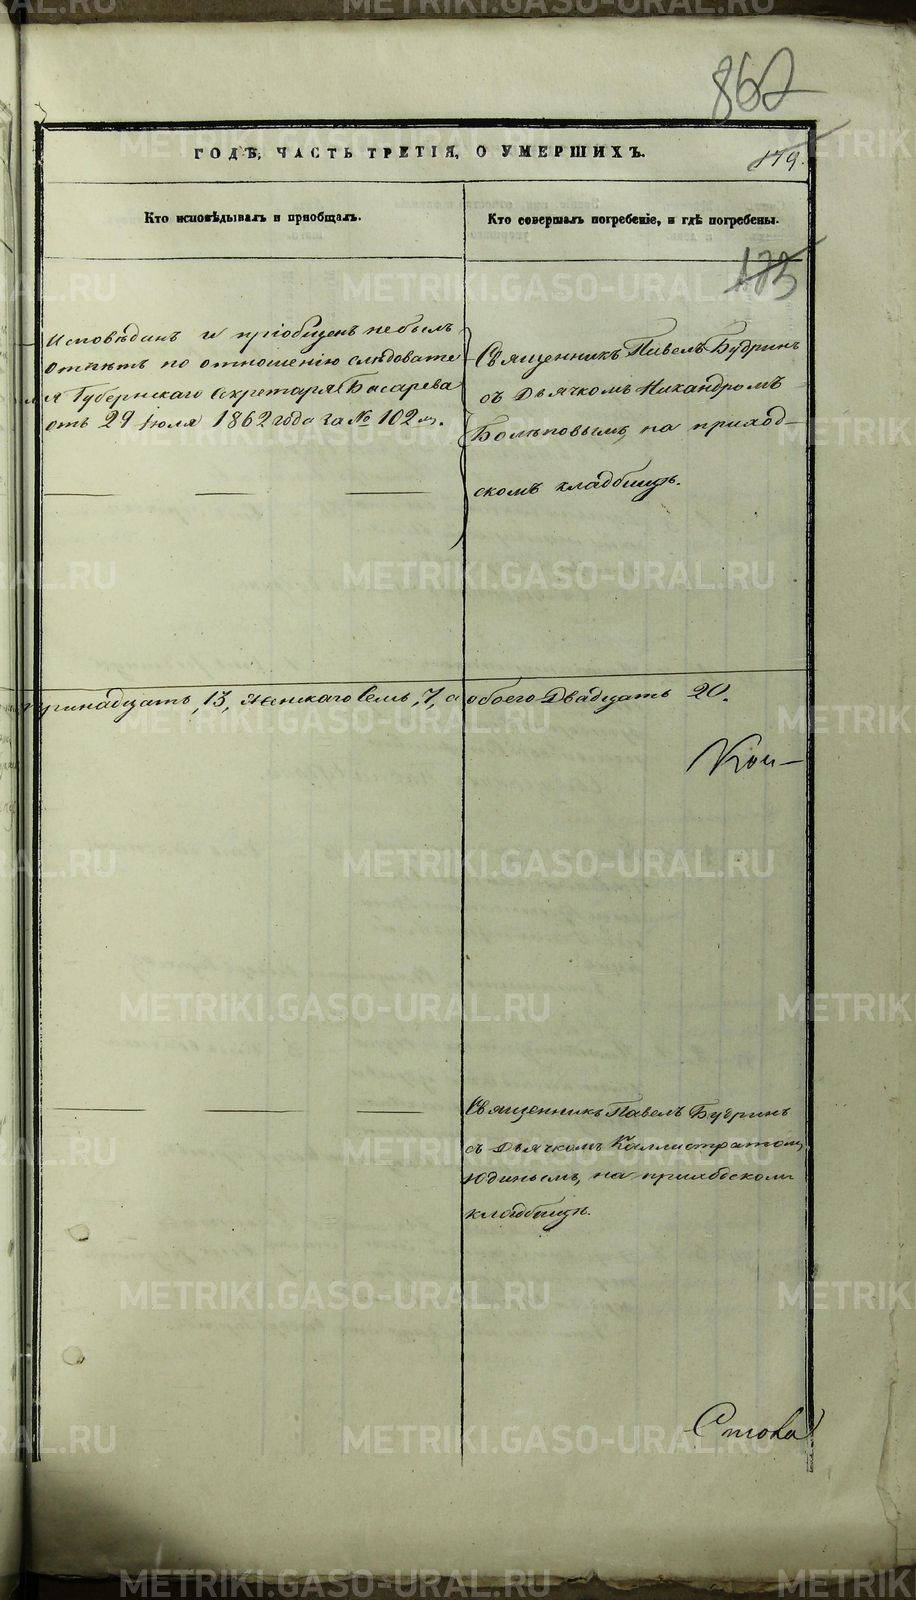 862
ГОДѢ, ЧАСТЬ ТРЕТІЯ, О УМЕРШИХЪ.
179.
Кто исповѣдывалъ и приобщалъ.
Кто совершалъ погребеніе, и гдѣ погребены.
Исповѣданъ и пріобщенъ небылъ
отпѣтъ по отношенію слѣдовате
ля Губернскаго Секретаря Басарева
отъ 29 Іюля 1862 года за № 102 м.
Священникъ Павелъ Будринъ
съ Дьячкомъ Никандромъ
на приход-
скомъ кладбищѣ.
тринадцать, 13, Женскаго Семь, 7, а обоего Двадцать 20.
Кон-
Священникъ Павелъ Будринъ
съ Дьячкомъ Каллистратомъ
Юдинымъ, на приходском
кладбищѣ.
METRIKI.GASO-URAL.RU